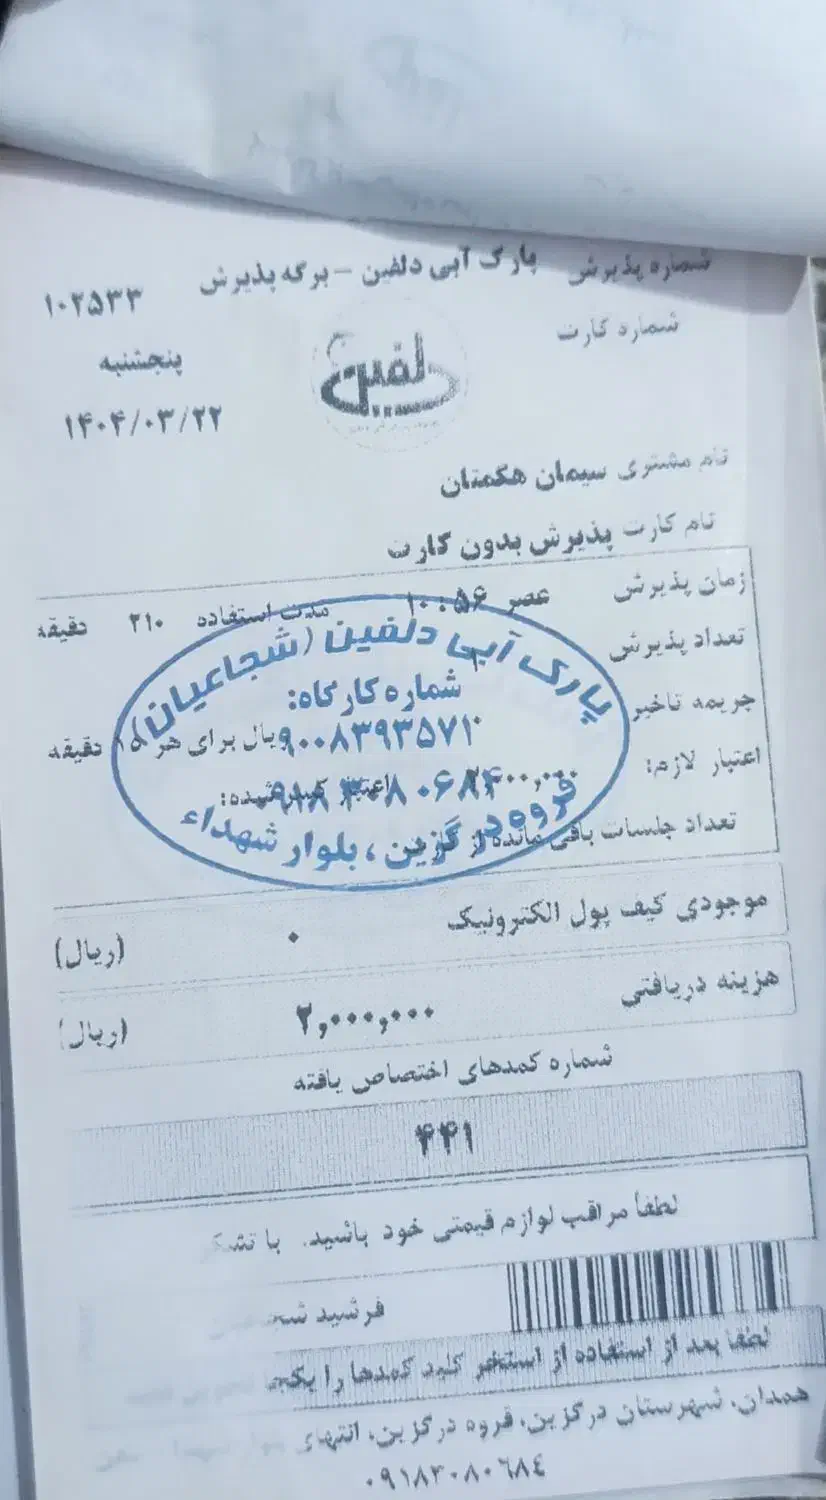 پارک آبی دلفین - برگه پذیرش
شماره پذیرش ۱۰۲۵۳۳
شماره کارت
پنجشنبه
۱۴۰۴/۰۳/۲۲
دلفین
نام مشتری سیمان هگمتان
نام کارت پذیرش بدون کارت
زمان پذیرش ۱۰:۵۶ عصر مدت استفاده ۲۱۰ دقیقه
تعداد پذیرش ۱
جریمه تاخیر ریال برای هر ۱۵ دقیقه
اعتبار لازم: اعتبار کسر شده:
تعداد جلسات باقی مانده از
پارک آبی دلفین (شجاعیان)
شماره کارگاه:
۹۰۰۸۳۹۳۵۷۱
۰۹۱۸۳۰۸۰۶۸۴
قروه درگزین، بلوار شهداء
موجودی کیف پول الکترونیک ۰ (ریال)
هزینه دریافتی ۲,۰۰۰,۰۰۰ (ریال)
شماره کمدهای اختصاص یافته
۴۴۱
لطفاً مراقب لوازم قیمتی خود باشید. با تشکر
فرشید
لطفا بعد از استفاده از استخر کلید کمدها را یکجا
همدان، شهرستان درگزین، قروه درگزین، انتهای
۰۹۱۸۳۰۸۰۶۸۴